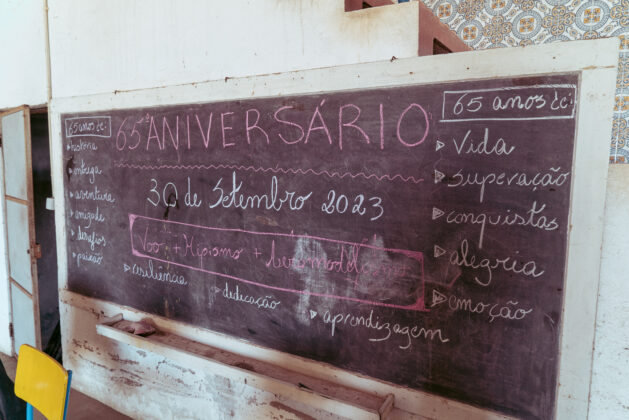 65 anos de:
história
entrega
aventura
amizade
desafios
paixão
65º ANIVERSÁRIO
30 de Setembro 2023
Voo + Hipismo + Aeromodelismo
resiliência
dedicação
aprendizagem
65 anos de:
Vida
Superação
conquistas
alegria
emoção